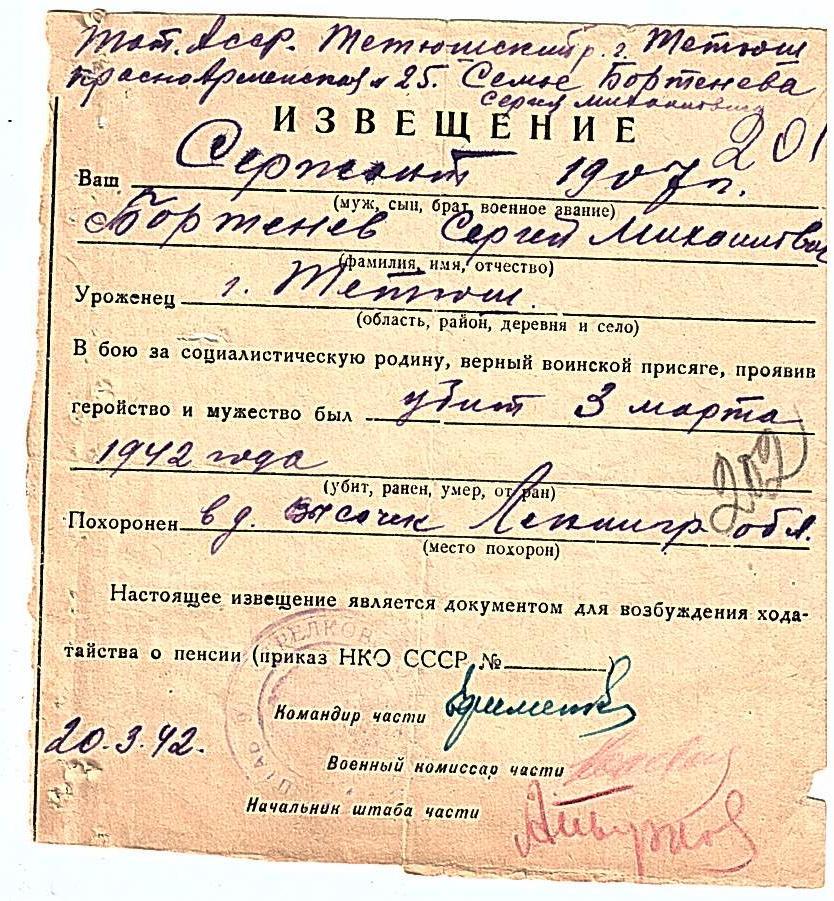 Тат. Асср. Тетюшский р. г. Тетюш
Красноармейская 25. Семье Бортенева
Сергея Михайловича
ИЗВЕЩЕНИЕ
201
Ваш Сержант 1907 г.
(муж, сын, брат, военное звание)
Бортенев Сергей Михайлович
(фамилия, имя, отчество)
Уроженец г. Тетюш.
(область, район, деревня и село)
В бою за социалистическую родину, верный воинской присяге, проявив
геройство и мужество был убит 3 марта
1942 года
202
(убит, ранен, умер, от ран)
Похоронен в д. Ленингр обл.
(место похорон)
Настоящее извещение является документом для возбуждения хода-
тайства о пенсии (приказ НКО СССР № )
Командир части
20.3.42.
Военный комиссар части
Начальник штаба части